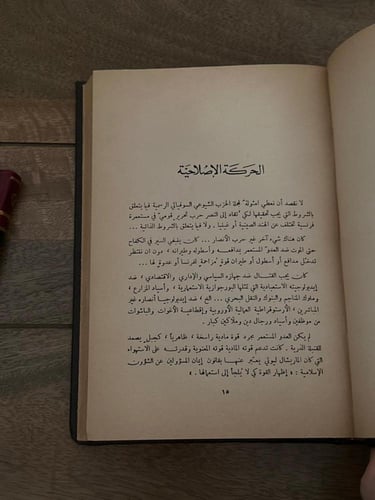 الحركة الإصلاحية
لا نقصد أن نعطي امثولة لمجلة الحزب الشيوعي السوفياتي الرسمية فيما يتعلق
بالشروط التي يجب تحقيقها لكي تقاد إلى النصر حرب تحرير قومي في مستعمرة
فرنسية تختلف عن الهند الصينية أو غينيا . ولا فيما يتعلق بالشروط الذاتية ...
كان هناك شيء آخر غير حرب الأنصار ... كان ينبغي السير في الكفاح
حتى الموت ضد العدو المستعمر بمدافعه وأسطوله وطيرانه ، دون ان ننتظر
تدخل مدافع أو أسطول أو طيران قوة مزاحمة لفرنسا أو عدوة لها .
كان يجب القتال ضد جهازه السياسي والإداري والاقتصادي ، ضد
إيديولوجيته الاستعبادية التي تمثلها البورجوازية الاستعمارية ، وأسياد المزارع ،
وملوك المناجم والبنوك والنقل البحري ... الخ ، ضد إيديولوجيا أنصاره غير
المباشرين ، الأرستوقراطية العمالية الأوروبية وإقطاعية الأغوات والباشوات
من موظفين وأسياد ورجال دين وملاكين كبار .
لم يكن العدو المستعمر مجرد قوة مادية راسخة ، ظاهرياً ، كجبل يصمد
للقنبلة الذرية . كانت تدعم قوته المادية قوته المعنوية وقدرته على الاستهواء
التي كان الماريشال ليوتي يعتبر عنها بقانون إيمان المسؤولين عن الشؤون
الإسلامية : « إظهار القوة كي لا يُلجأ إلى استعمالها . »
١٥